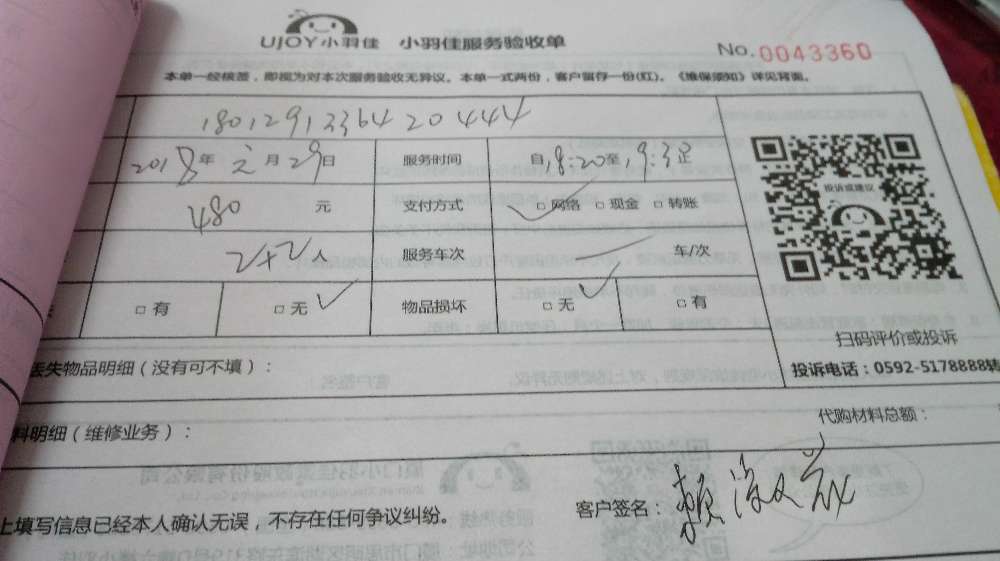 UJOY小羽佳 小羽佳服务验收单
No.0043360
本单一经核签，即视为对本次服务验收无异议。本单一式两份，客户留存一份(红)。《维保须知》详见背面。
1801291336420444
2018年元月29日 服务时间 自18:20至19:3正
480元 支付方式 □网络 □现金 □转账
2+2人 服务车次 车/次
□有 □无 物品损坏 □无 □有
投诉或建议
扫码评价或投诉
投诉电话：0592-5178888转
丢失物品明细（没有可不填）：
料明细（维修业务）： 代购材料总额：
上填写信息已经本人确认无误，不存在任何争议纠纷。 客户签名：